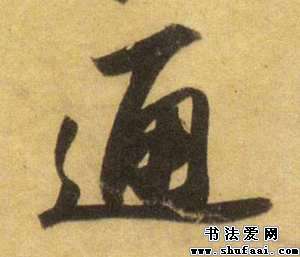 通
书法爱网
www.shufaai.com